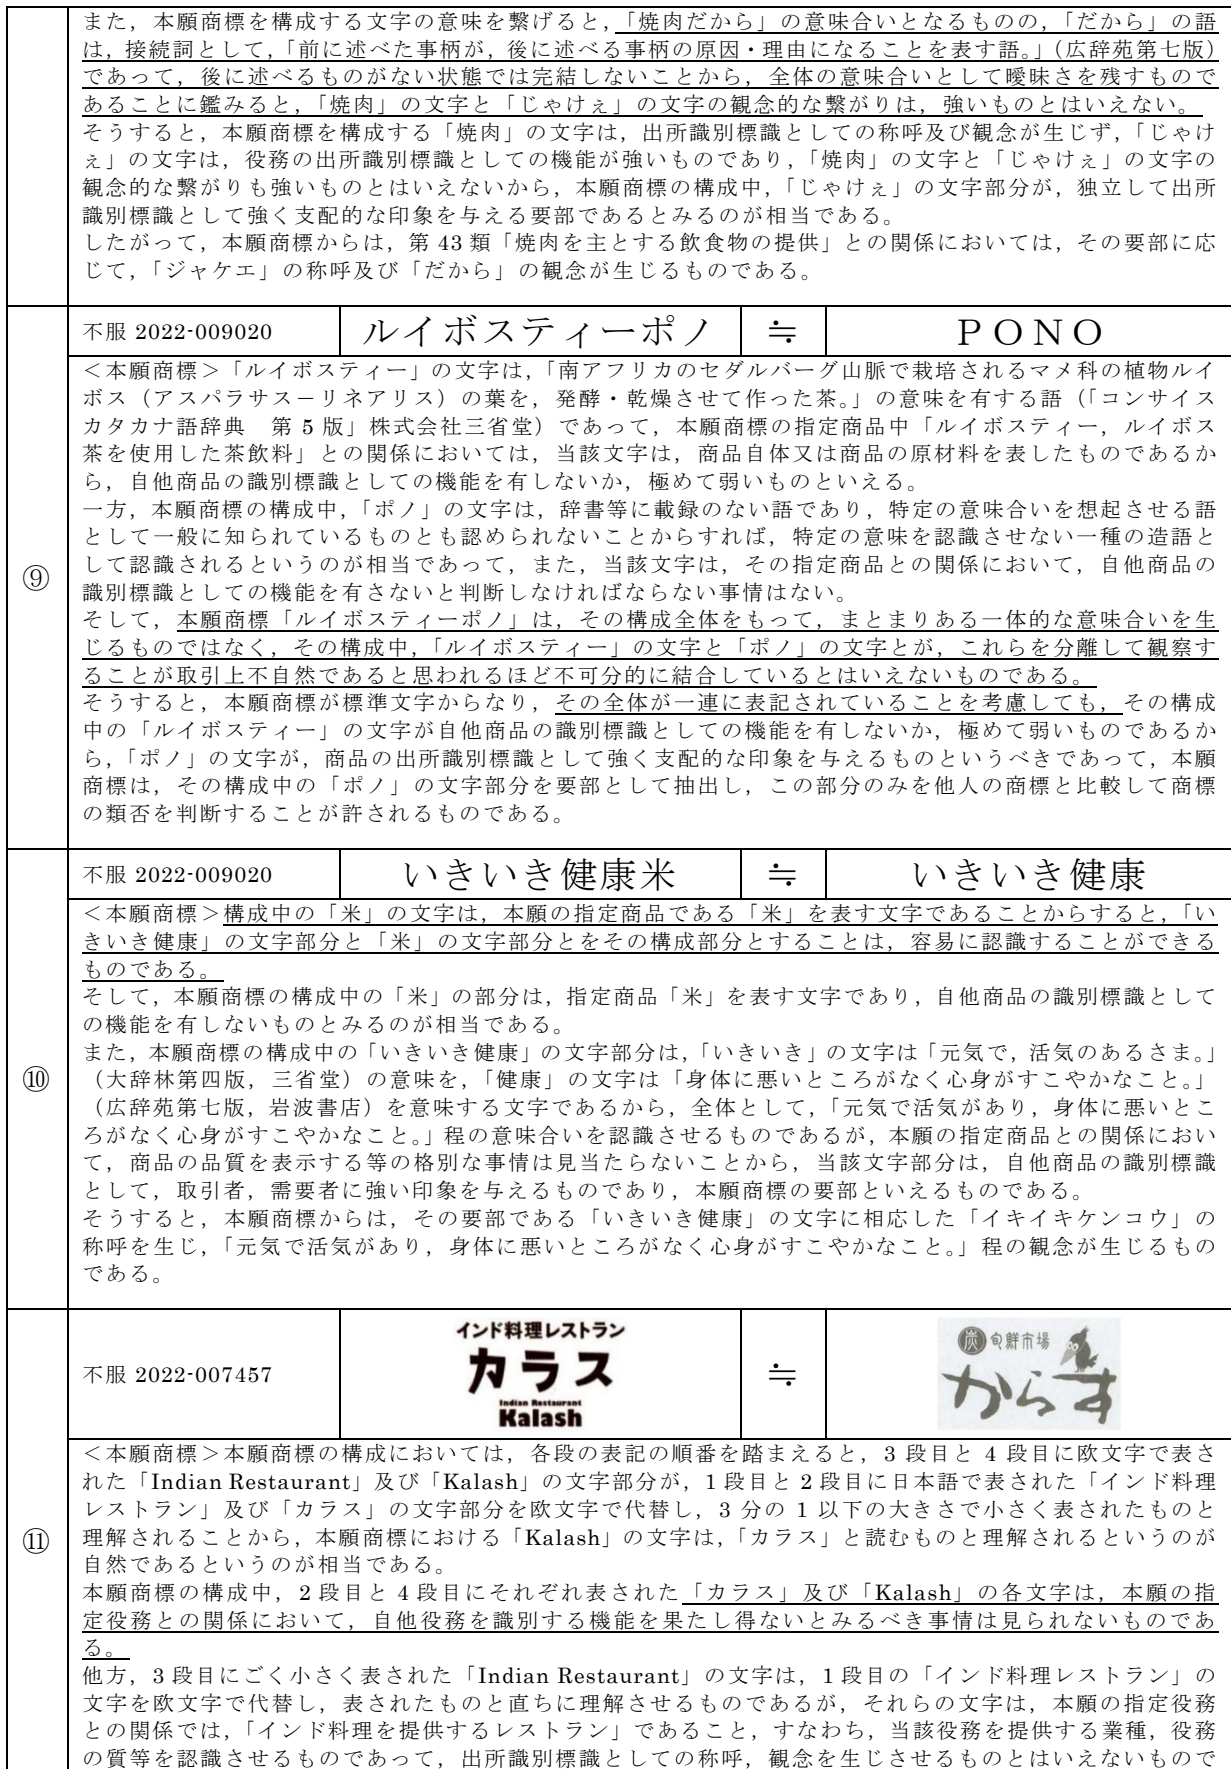 また，本願商標を構成する文字の意味を繋げると，「焼肉だから」の意味合いとなるものの，「だから」の語
は，接続詞として，「前に述べた事柄が，後に述べる事柄の原因・理由になることを表す語。」（広辞苑第七版）
であって，後に述べるものがない状態では完結しないことから，全体の意味合いとして曖昧さを残すもので
あることに鑑みると，「焼肉」の文字と「じゃけぇ」の文字の観念的な繋がりは，強いものとはいえない。
そうすると，本願商標を構成する「焼肉」の文字は，出所識別標識としての称呼及び観念が生じず，「じゃけ
ぇ」の文字は，役務の出所識別標識としての機能が強いものであり，「焼肉」の文字と「じゃけぇ」の文字の
観念的な繋がりも強いものとはいえないから，本願商標の構成中，「じゃけぇ」の文字部分が，独立して出所
識別標識として強く支配的な印象を与える要部であるとみるのが相当である。
したがって，本願商標からは，第 43 類「焼肉を主とする飲食物の提供」との関係においては，その要部に応
じて，「ジャケエ」の称呼及び「だから」の観念が生じるものである。
⑨
不服 2022-009020 ルイボスティーポノ ≒ ＰＯＮＯ
＜本願商標＞「ルイボスティー」の文字は，「南アフリカのセダルバーグ山脈で栽培されるマメ科の植物ルイ
ボス（アスパラサス－リネアリス）の葉を，発酵・乾燥させて作った茶。」の意味を有する語（「コンサイス
カタカナ語辞典　第 5 版」株式会社三省堂）であって，本願商標の指定商品中「ルイボスティー，ルイボス
茶を使用した茶飲料」との関係においては，当該文字は，商品自体又は商品の原材料を表したものであるか
ら，自他商品の識別標識としての機能を有しないか，極めて弱いものといえる。
一方，本願商標の構成中，「ポノ」の文字は，辞書等に載録のない語であり，特定の意味合いを想起させる語
として一般に知られているものとも認められないことからすれば，特定の意味を認識させない一種の造語と
して認識されるというのが相当であって，また，当該文字は，その指定商品との関係において，自他商品の
識別標識としての機能を有さないと判断しなければならない事情はない。
そして，本願商標「ルイボスティーポノ」は，その構成全体をもって，まとまりある一体的な意味合いを生
じるものではなく，その構成中，「ルイボスティー」の文字と「ポノ」の文字とが，これらを分離して観察す
ることが取引上不自然であると思われるほど不可分的に結合しているとはいえないものである。
そうすると，本願商標が標準文字からなり，その全体が一連に表記されていることを考慮しても，その構成
中の「ルイボスティー」の文字が自他商品の識別標識としての機能を有しないか，極めて弱いものであるか
ら，「ポノ」の文字が，商品の出所識別標識として強く支配的な印象を与えるものというべきであって，本願
商標は，その構成中の「ポノ」の文字部分を要部として抽出し，この部分のみを他人の商標と比較して商標
の類否を判断することが許されるものである。
⑩
不服 2022-009020 いきいき健康米 ≒ いきいき健康
＜本願商標＞構成中の「米」の文字は，本願の指定商品である「米」を表す文字であることからすると，「い
きいき健康」の文字部分と「米」の文字部分とをその構成部分とすることは，容易に認識することができる
ものである。
そして，本願商標の構成中の「米」の部分は，指定商品「米」を表す文字であり，自他商品の識別標識として
の機能を有しないものとみるのが相当である。
また，本願商標の構成中の「いきいき健康」の文字部分は，「いきいき」の文字は「元気で，活気のあるさま。」
（大辞林第四版，三省堂）の意味を，「健康」の文字は「身体に悪いところがなく心身がすこやかなこと。」
（広辞苑第七版，岩波書店）を意味する文字であるから，全体として，「元気で活気があり，身体に悪いとこ
ろがなく心身がすこやかなこと。」程の意味合いを認識させるものであるが，本願の指定商品との関係におい
て，商品の品質を表示する等の格別な事情は見当たらないことから，当該文字部分は，自他商品の識別標識
として，取引者，需要者に強い印象を与えるものであり，本願商標の要部といえるものである。
そうすると，本願商標からは，その要部である「いきいき健康」の文字に相応した「イキイキケンコウ」の
称呼を生じ，「元気で活気があり，身体に悪いところがなく心身がすこやかなこと。」程の観念が生じるもの
である。
⑪
不服 2022-007457
インド料理レストラン
カラス
Indian Restaurant
Kalash
≒
炭 旬鮮市場
からす
＜本願商標＞本願商標の構成においては，各段の表記の順番を踏まえると，3 段目と 4 段目に欧文字で表さ
れた「Indian Restaurant」及び「Kalash」の文字部分が，1 段目と 2 段目に日本語で表された「インド料理
レストラン」及び「カラス」の文字部分を欧文字で代替し，3 分の 1 以下の大きさで小さく表されたものと
理解されることから，本願商標における「Kalash」の文字は，「カラス」と読むものと理解されるというのが
自然であるというのが相当である。
本願商標の構成中，2 段目と 4 段目にそれぞれ表された「カラス」及び「Kalash」の各文字は，本願の指
定役務との関係において，自他役務を識別する機能を果たし得ないとみるべき事情は見られないものであ
る。
他方，3 段目にごく小さく表された「Indian Restaurant」の文字は，1 段目の「インド料理レストラン」の
文字を欧文字で代替し，表されたものと直ちに理解させるものであるが，それらの文字は，本願の指定役務
との関係では，「インド料理を提供するレストラン」であること，すなわち，当該役務を提供する業種，役務
の質等を認識させるものであって，出所識別標識としての称呼，観念を生じさせるものとはいえないもので